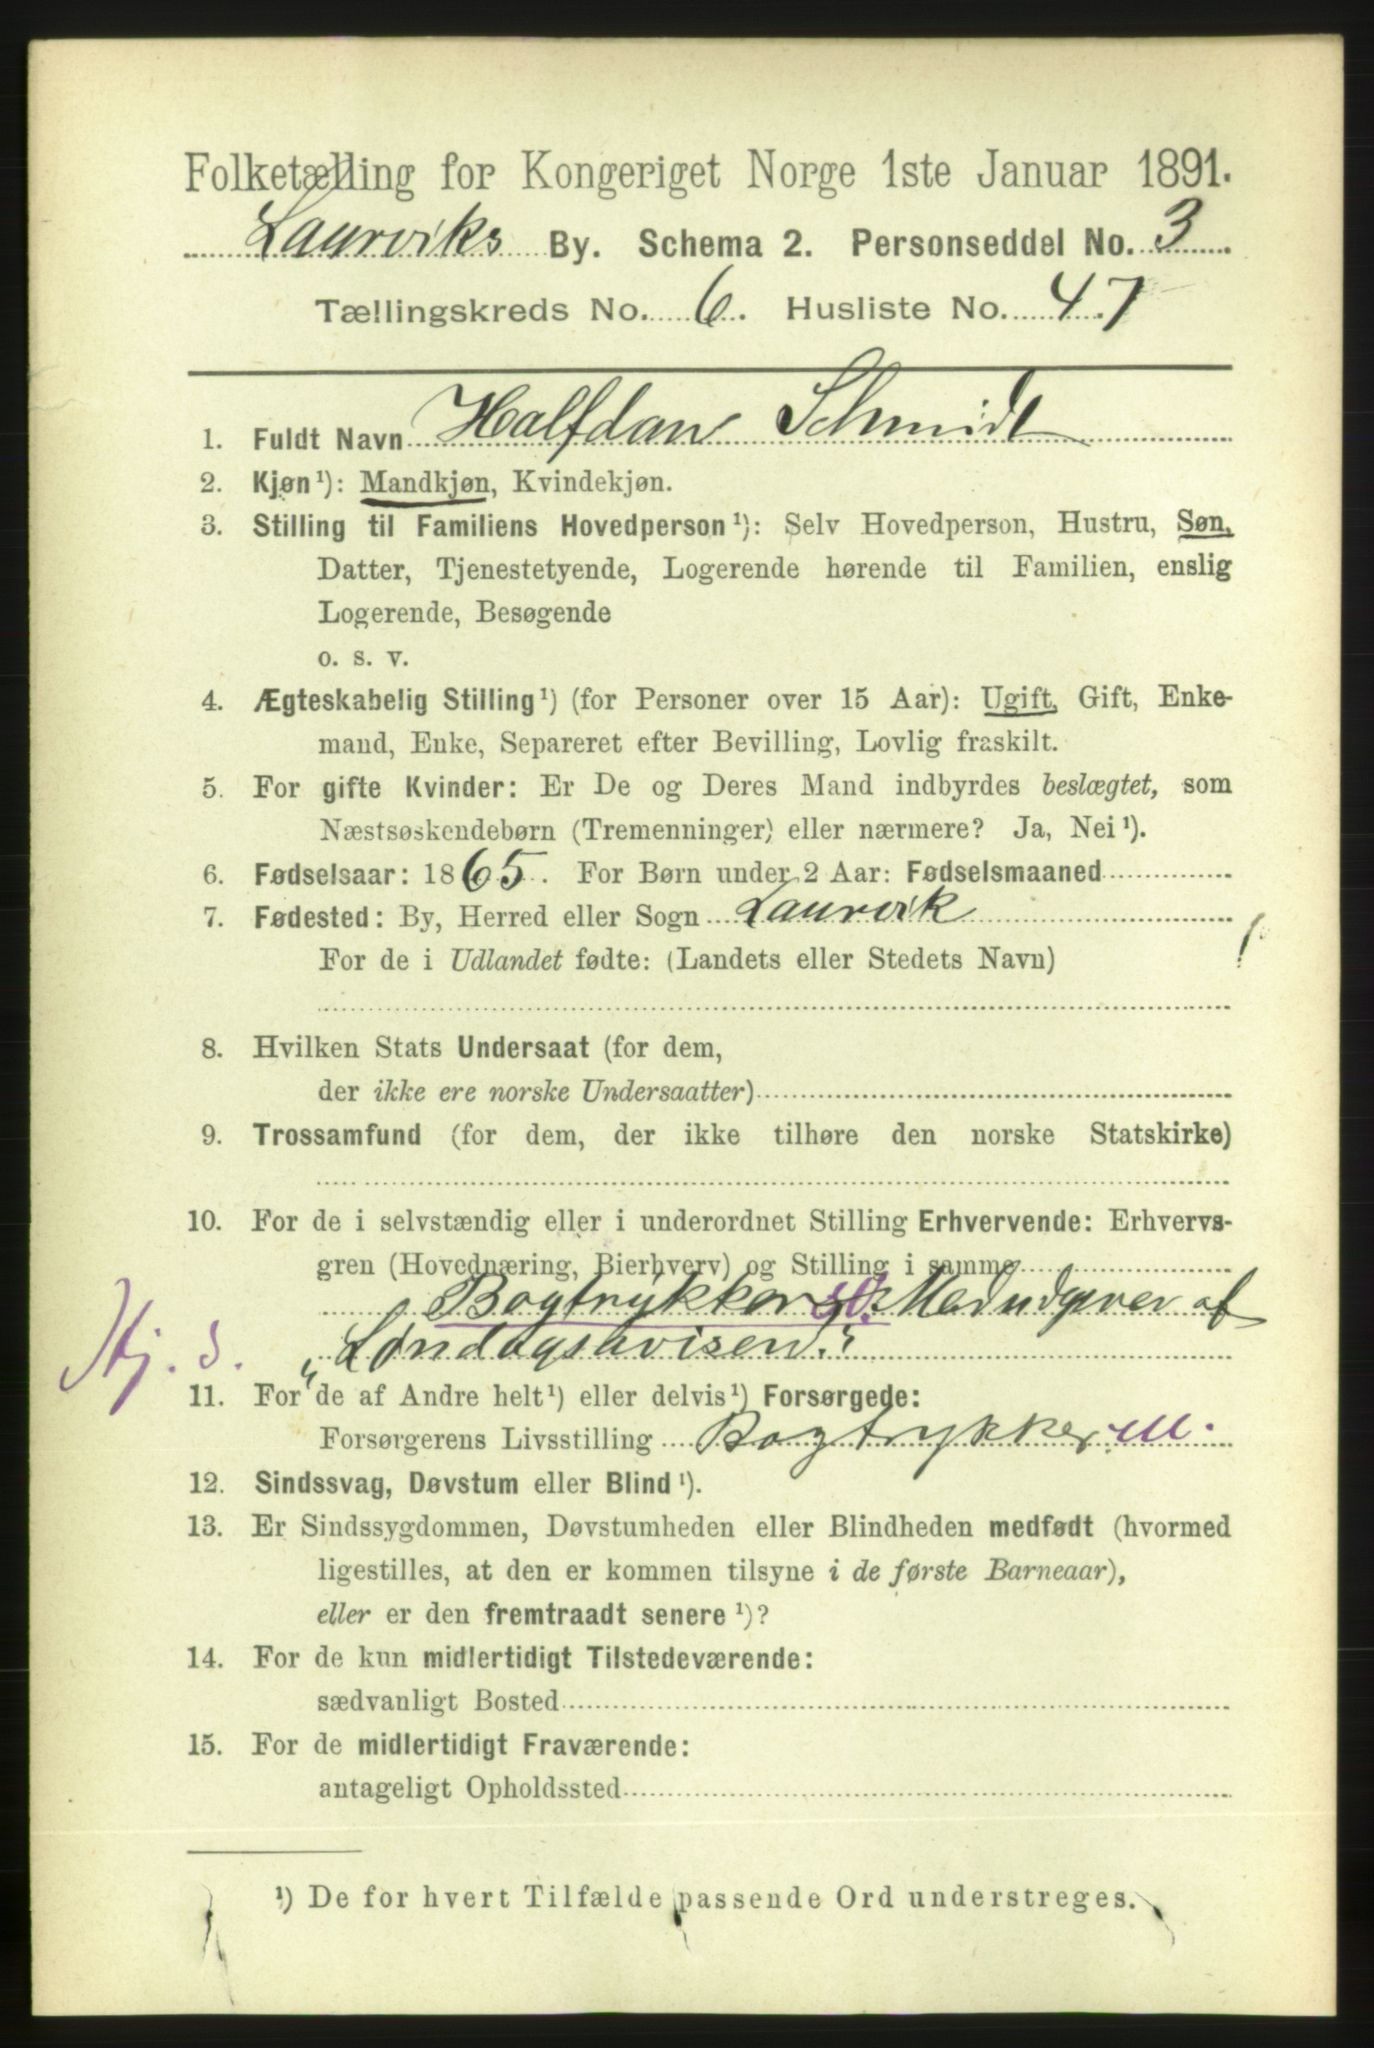 Folketælling for Kongeriget Norge 1ste Januar 1891.
Laurviks By. Schema 2. Personseddel No. 3
Tællingskreds No. 6. Husliste No. 47
1. Fuldt Navn Halfdan Schmidt
2. Kjøn¹): Mandkjøn, Kvindekjøn.
3. Stilling til Familiens Hovedperson¹): Selv Hovedperson, Hustru, Søn,
Datter, Tjenestetyende, Logerende hørende til Familien, enslig
Logerende, Besøgende
o. s. v.
4. Ægteskabelig Stilling¹) (for Personer over 15 Aar): Ugift, Gift, Enke-
mand, Enke, Separeret efter Bevilling, Lovlig fraskilt.
5. For gifte Kvinder: Er De og Deres Mand indbyrdes beslægtet, som
Næstsøskendebørn (Tremenninger) eller nærmere? Ja, Nei¹).
6. Fødselsaar: 1865. For Børn under 2 Aar: Fødselsmaaned
7. Fødested: By, Herred eller Sogn Laurvik
For de i Udlandet fødte: (Landets eller Stedets Navn)
8. Hvilken Stats Undersaat (for dem,
der ikke ere norske Undersaatter)
9. Trossamfund (for dem, der ikke tilhøre den norske Statskirke)
10. For de i selvstændig eller i underordnet Stilling Erhvervende: Erhvervs-
gren (Hovednæring, Bierhverv) og Stilling i samme
Bogtrykker Medudgiver af
Hj. s. „Søndagsavisen"
11. For de af Andre helt¹) eller delvis¹) Forsørgede:
Forsørgerens Livsstilling Bogtrykker M.
12. Sindssvag, Døvstum eller Blind¹).
13. Er Sindssygdommen, Døvstumheden eller Blindheden medfødt (hvormed
ligestilles, at den er kommen tilsyne i de første Barneaar),
eller er den fremtraadt senere¹)?
14. For de kun midlertidigt Tilstedeværende:
sædvanligt Bosted
15. For de midlertidigt Fraværende:
antageligt Opholdssted
¹) De for hvert Tilfælde passende Ord understreges.